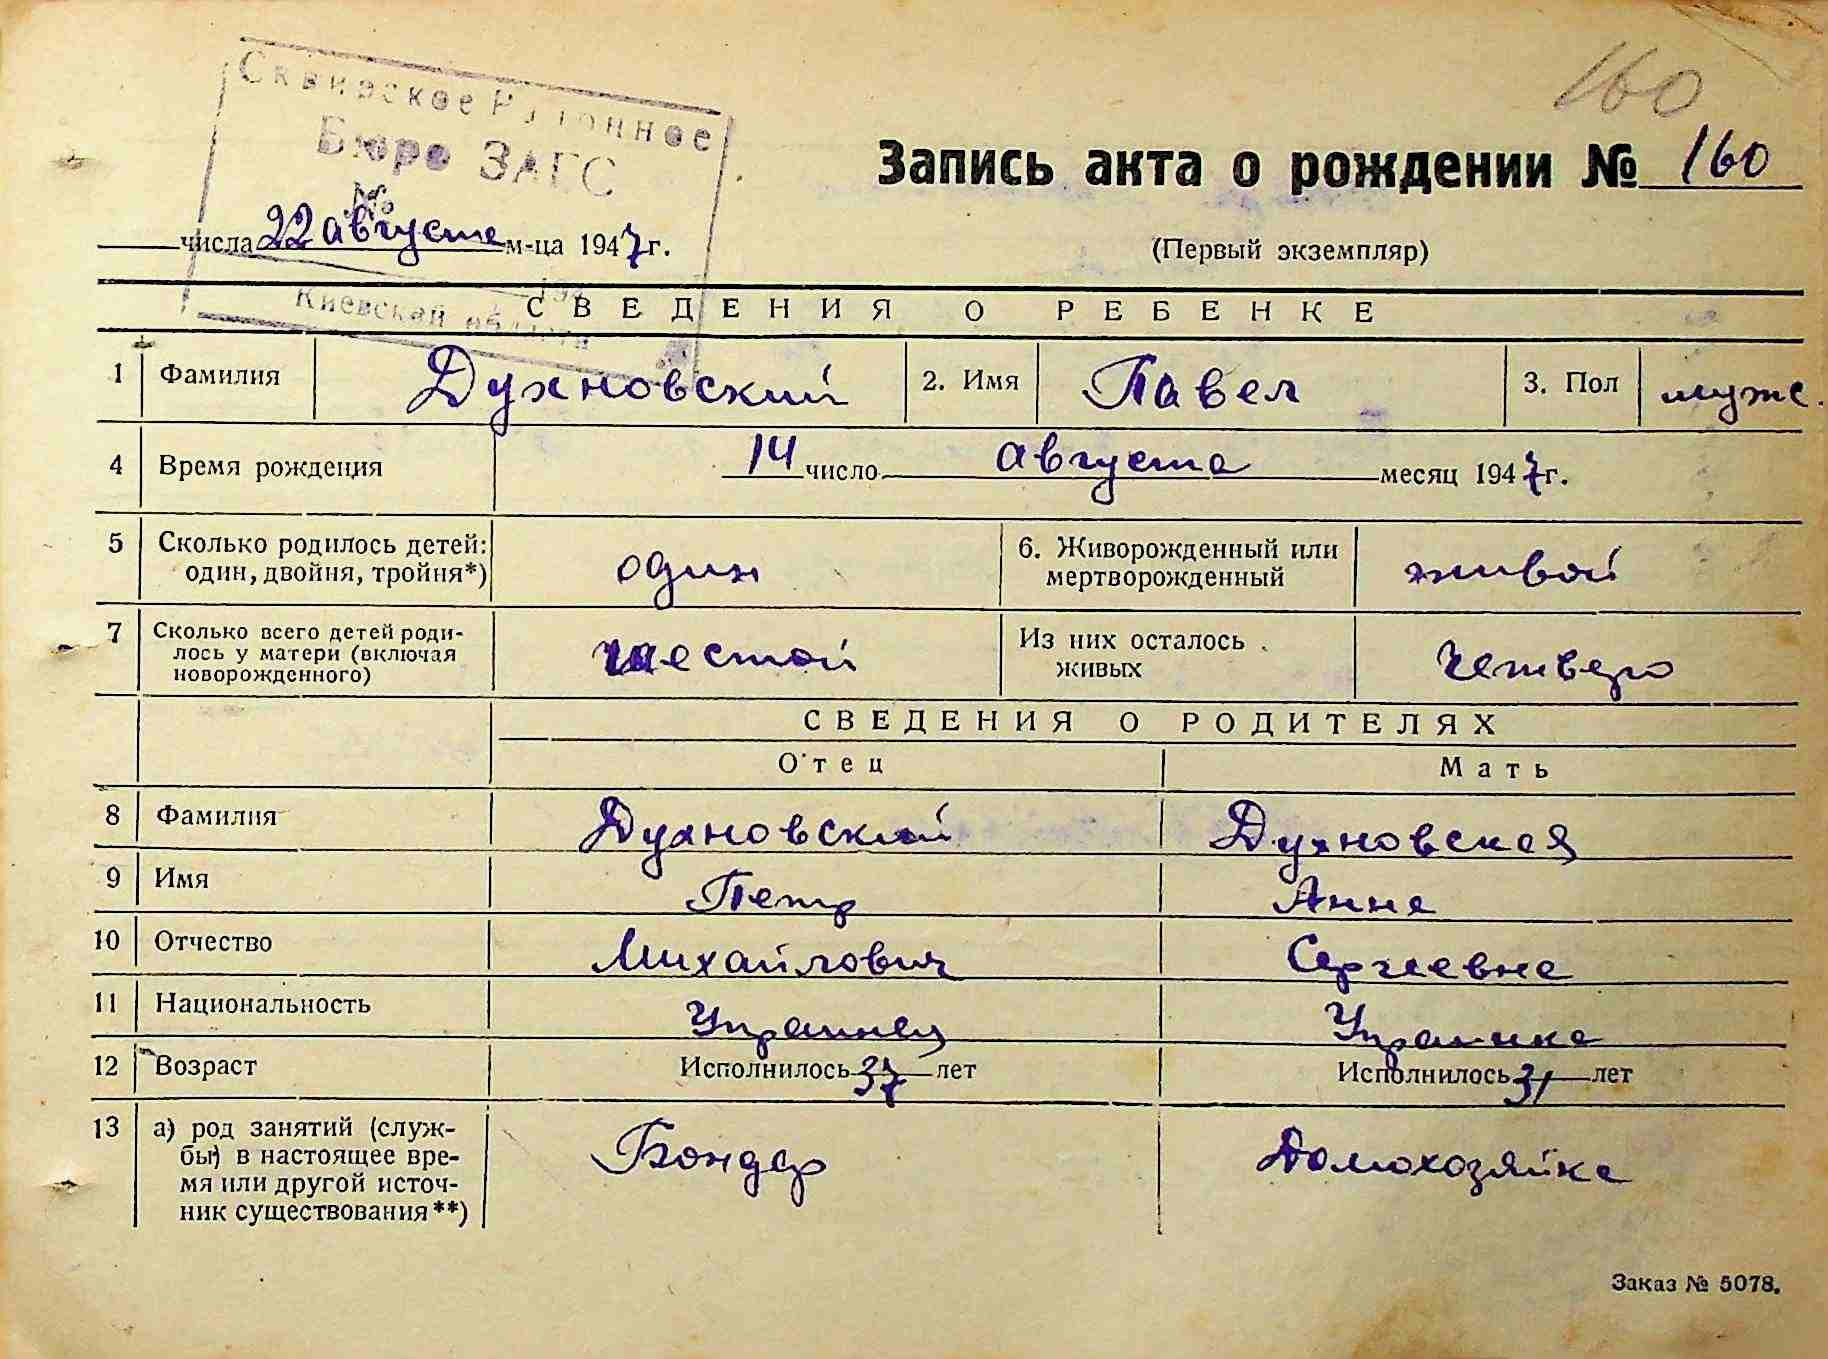 160
Сквирское Районное
Бюро ЗАГС
№
Киевской области
Запись акта о рождении № 160
числа 22 августа м-ца 1947 г.
(Первый экземпляр)
СВЕДЕНИЯ О РЕБЕНКЕ
1 Фамилия Духновский 2. Имя Павел 3. Пол муж.
4 Время рождения 14 число августа месяц 1947 г.
5 Сколько родилось детей: один, двойня, тройня*) один 6. Живорожденный или мертворожденный живой
7 Сколько всего детей роди-
лось у матери (включая
новорожденного) шестой Из них осталось живых четверо
СВЕДЕНИЯ О РОДИТЕЛЯХ
Отец Мать
8 Фамилия Духновский Духновская
9 Имя Петр Анна
10 Отчество Михайлович Сергеевна
11 Национальность Украинец Украинка
12 Возраст Исполнилось 37 лет Исполнилось 31 лет
13 а) род занятий (служ-
бы) в настоящее вре-
мя или другой источ-
ник существования**) Бондар Домохозяйка
Заказ № 5078.